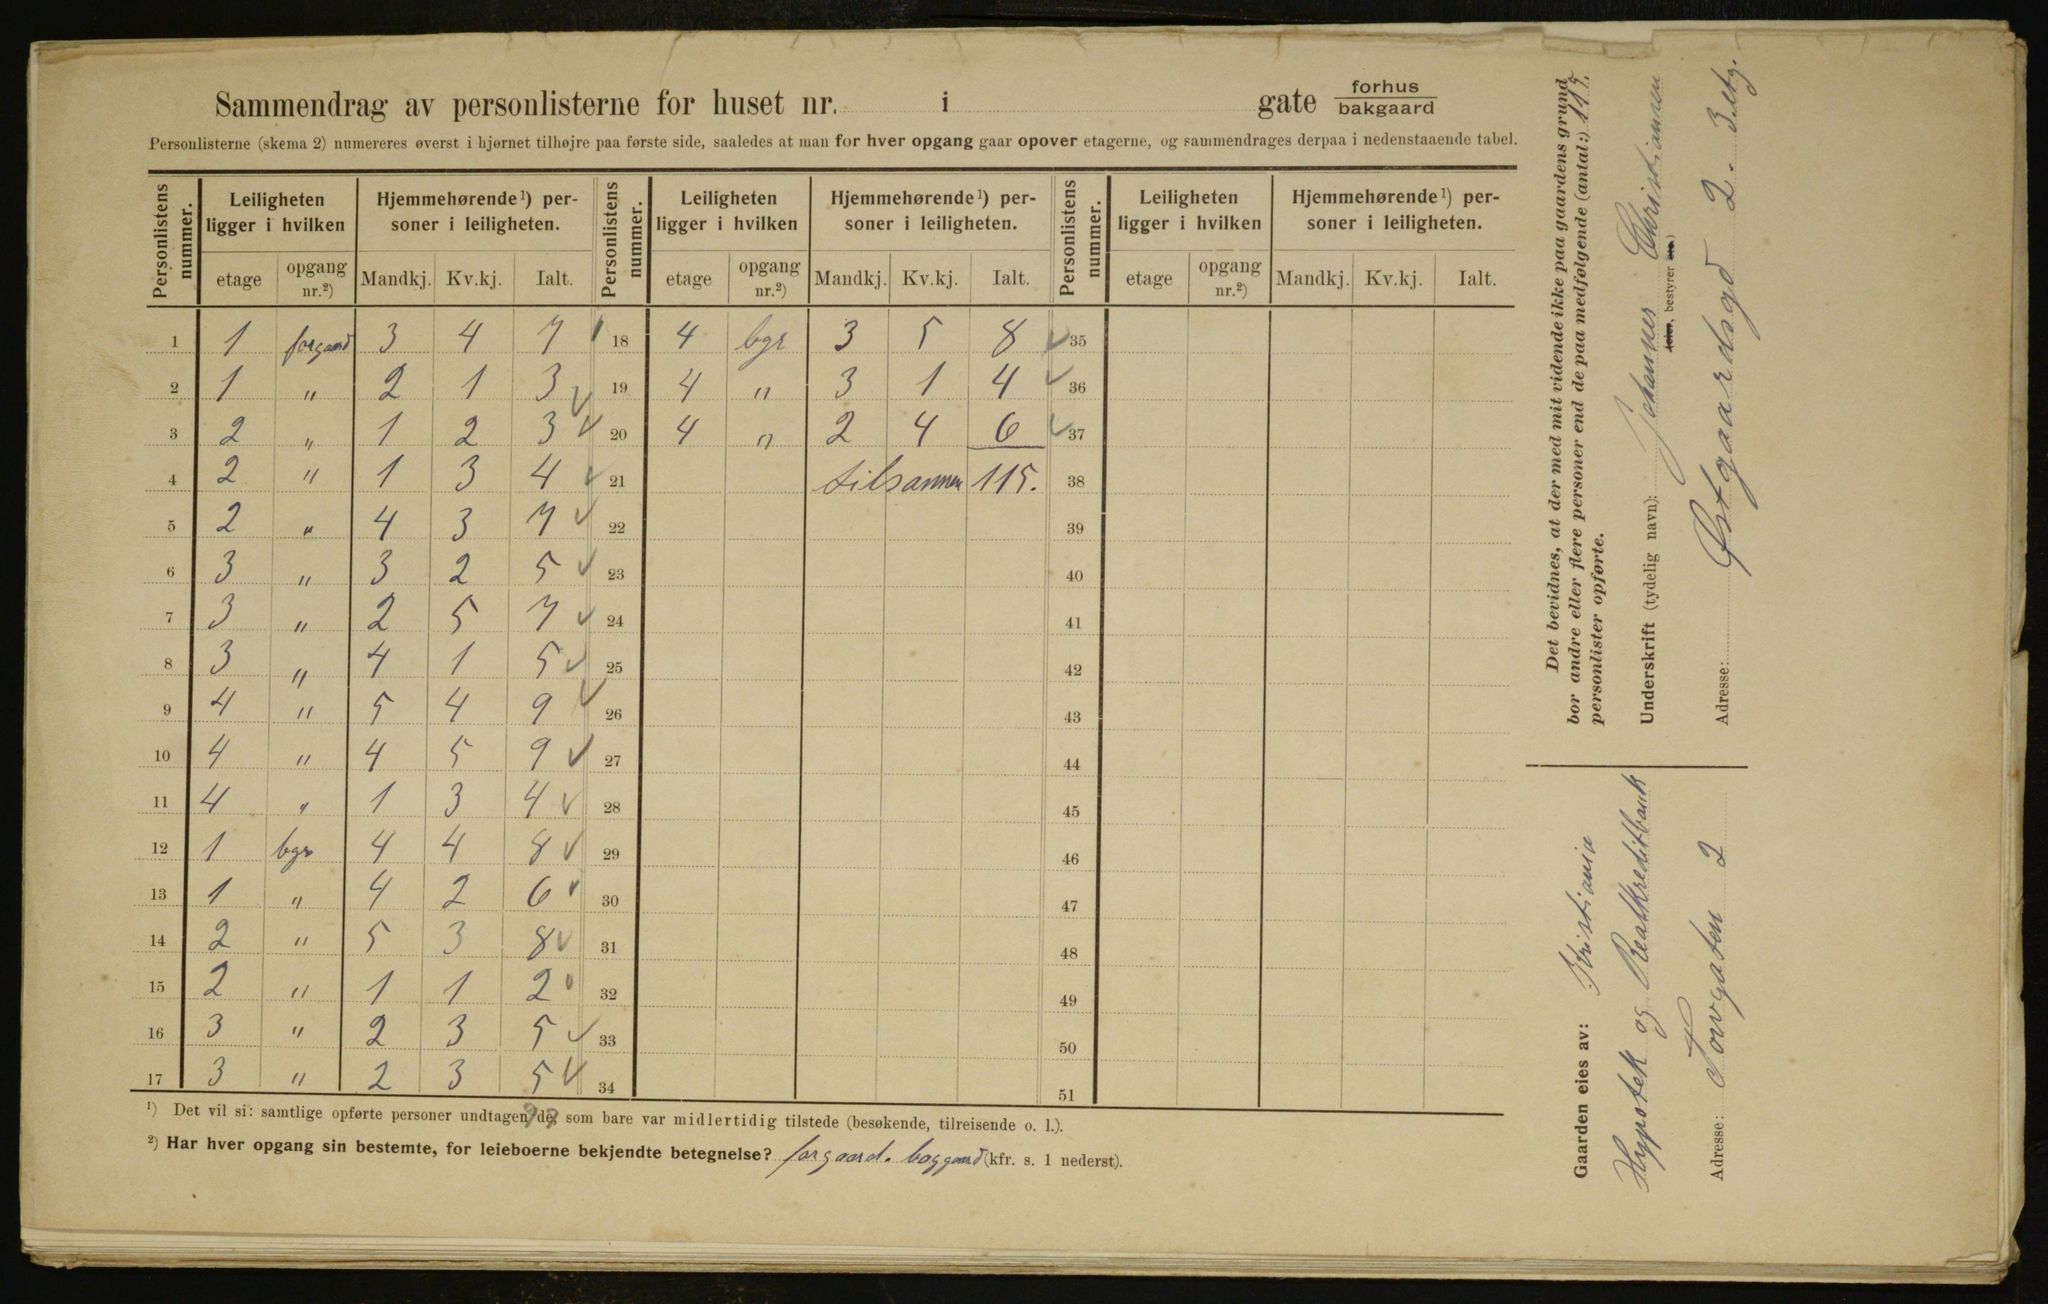 Sammendrag av personlisterne for huset nr. i gate forhus bakgaard
Personlisterne (skema 2) numereres øverst i hjørnet tilhøjre paa første side, saaledes at man for hver opgang gaar opover etagerne, og sammendrages derpaa i nedenstaaende tabel.
Personlistens nummer. Leiligheten ligger i hvilken Hjemmehørende¹) personer i leiligheten. Personlistens nummer. Leiligheten ligger i hvilken Hjemmehørende¹) personer i leiligheten. Personlistens nummer. Leiligheten ligger i hvilken Hjemmehørende¹) personer i leiligheten.
etage opgang nr.²) Mandkj. Kv.kj. Ialt. etage opgang nr.²) Mandkj. Kv.kj. Ialt. etage opgang nr.²) Mandkj. Kv.kj. Ialt.
1 1 forgaard 3 4 7 18 4 bgr 3 5 8 35
2 1 " 2 1 3 19 4 " 3 1 4 36
3 2 " 1 2 3 20 4 " 2 4 6 37
4 2 " 1 3 4 21 tilsammen 115. 38
5 2 " 4 3 7 22 39
6 3 " 3 2 5 23 40
7 3 " 2 5 7 24 41
8 3 " 4 1 5 25 42
9 4 " 5 4 9 26 43
10 4 " 4 5 9 27 44
11 4 " 1 3 4 28 45
12 1 bgr 4 4 8 29 46
13 1 " 4 2 6 30 47
14 2 " 5 3 8 31 48
15 2 " 1 1 2 32 49
16 3 " 2 3 5 33 50
17 3 " 2 3 5 34 51
¹) Det vil si: samtlige opførte personer undtagen de, som bare var midlertidig tilstede (besøkende, tilreisende o. l.).
²) Har hver opgang sin bestemte, for leieboerne bekjendte betegnelse? forgaard. baggaard (kfr. s. 1 nederst).
Det bevidnes, at der med mit vidende ikke paa gaardens grund
bor andre eller flere personer end de paa medfølgende (antal:) 115.
personlister opførte.
Underskrift (tydelig navn): Johannes Christiansen
bestyrer
Adresse: Østgaardsgd 2. 3 etg.
Gaarden eies av: Kristiania
Hypotek og Realkreditbank
Adresse: Torvgaten 2